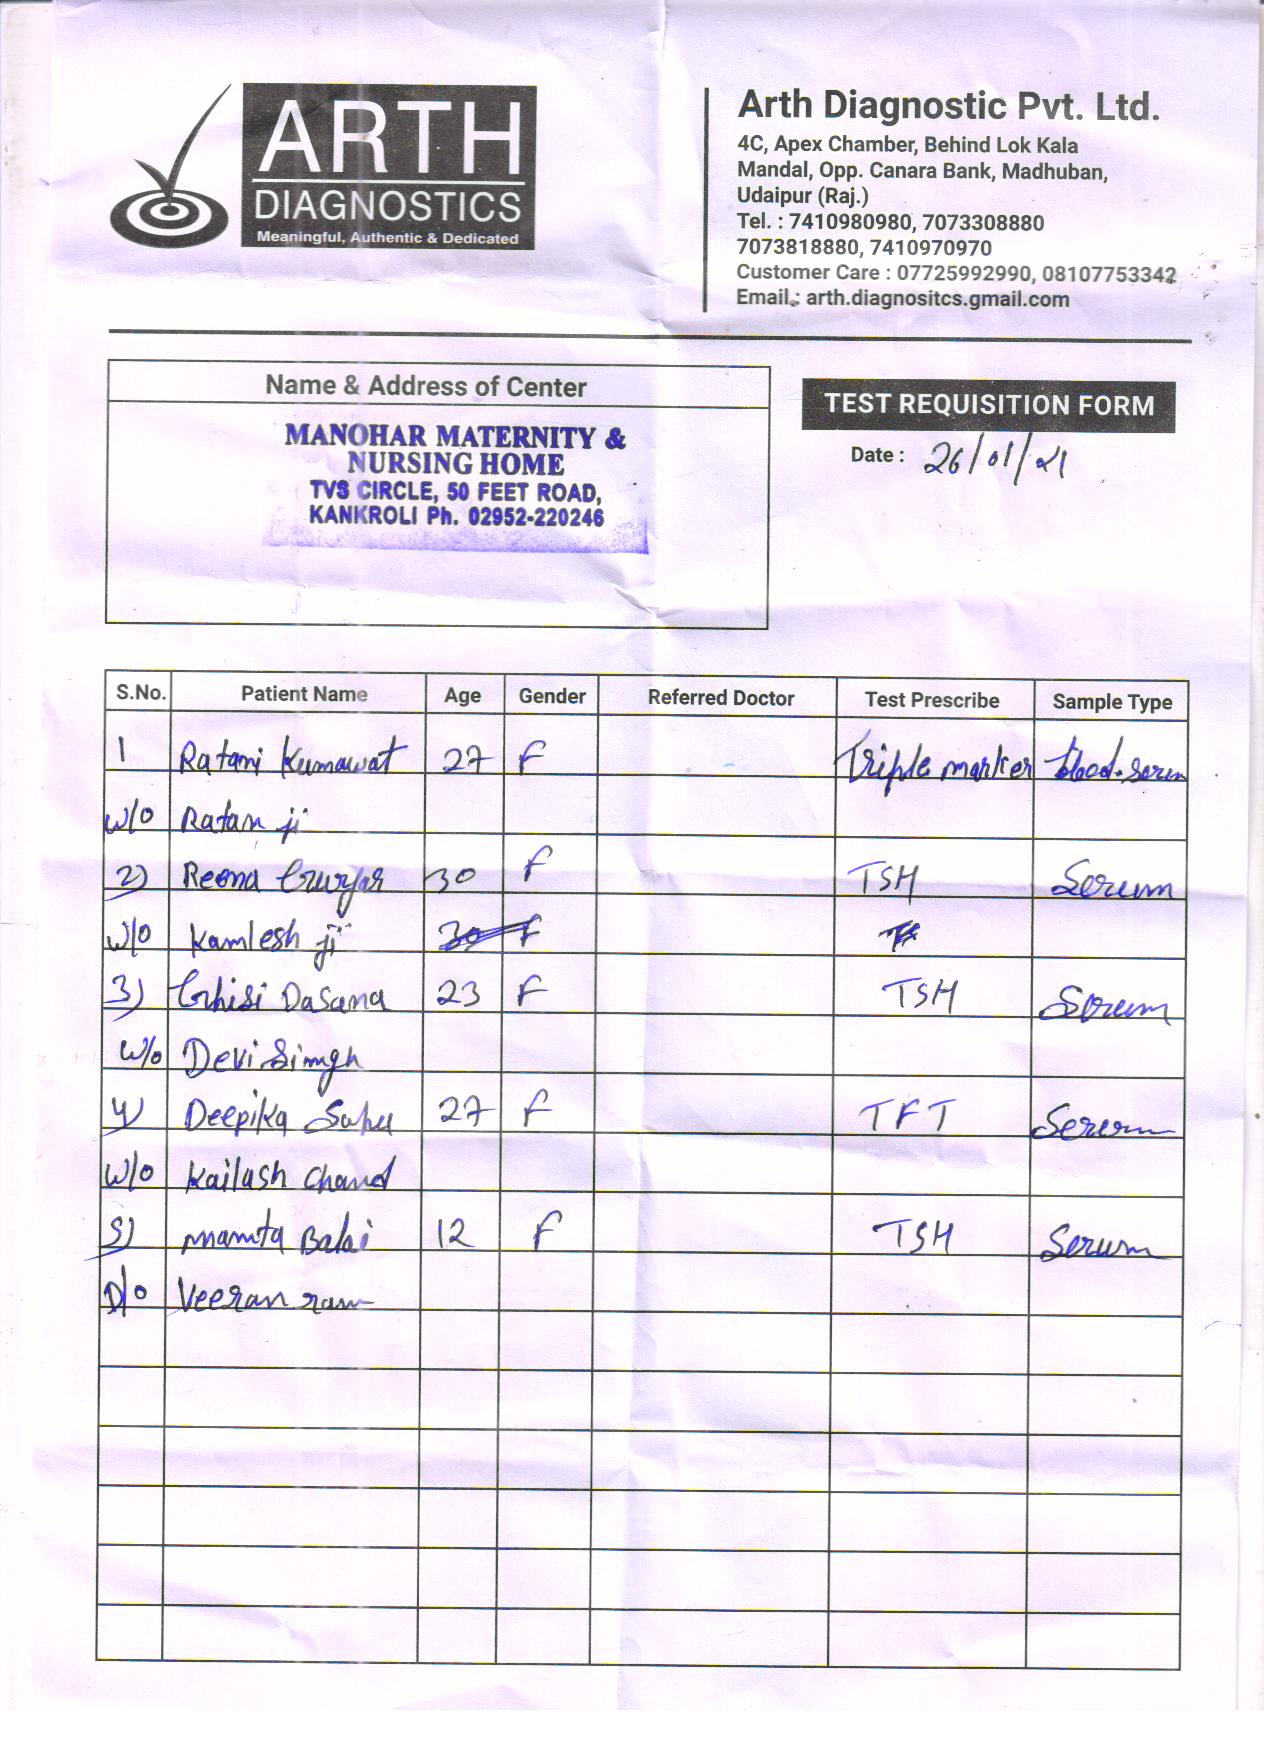 ARTH
DIAGNOSTICS
Meaningful, Authentic & Dedicated
Arth Diagnostic Pvt. Ltd.
4C, Apex Chamber, Behind Lok Kala
Mandal, Opp. Canara Bank, Madhuban,
Udaipur (Raj.)
Tel. : 7410980980, 7073308880
7073818880, 7410970970
Customer Care : 07725992990, 08107753342
Email : arth.diagnositcs.gmail.com
Name & Address of Center
MANOHAR MATERNITY &
NURSING HOME
TVS CIRCLE, 50 FEET ROAD,
KANKROLI Ph. 02952-220246
TEST REQUISITION FORM
Date : 26/01/21
S.No. Patient Name Age Gender Referred Doctor Test Prescribe Sample Type
1 Ratani Kumawat 27 F Triple marker blood. serum
w/o Ratan ji
2) Reena Gurjar 30 F TSH Serum
w/o Kamlesh ji 30 F
3) Ghisi Dasana 23 F TSH Serum
w/o Devi Singh
4) Deepika Sahu 27 F TFT Serum
w/o Kailash Chand
5) Mamta Balai 12 F TSH Serum
D/o Veeran ram